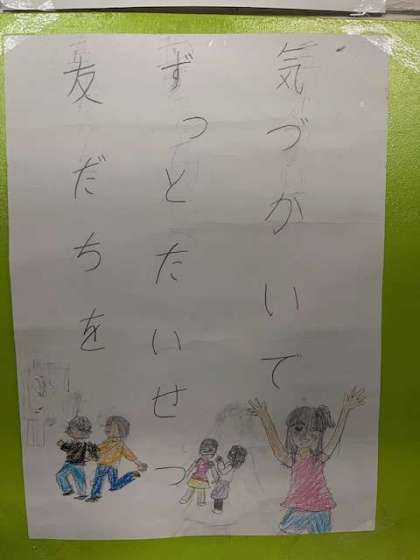 気づかいて
ずっとたいせつ
友だちを